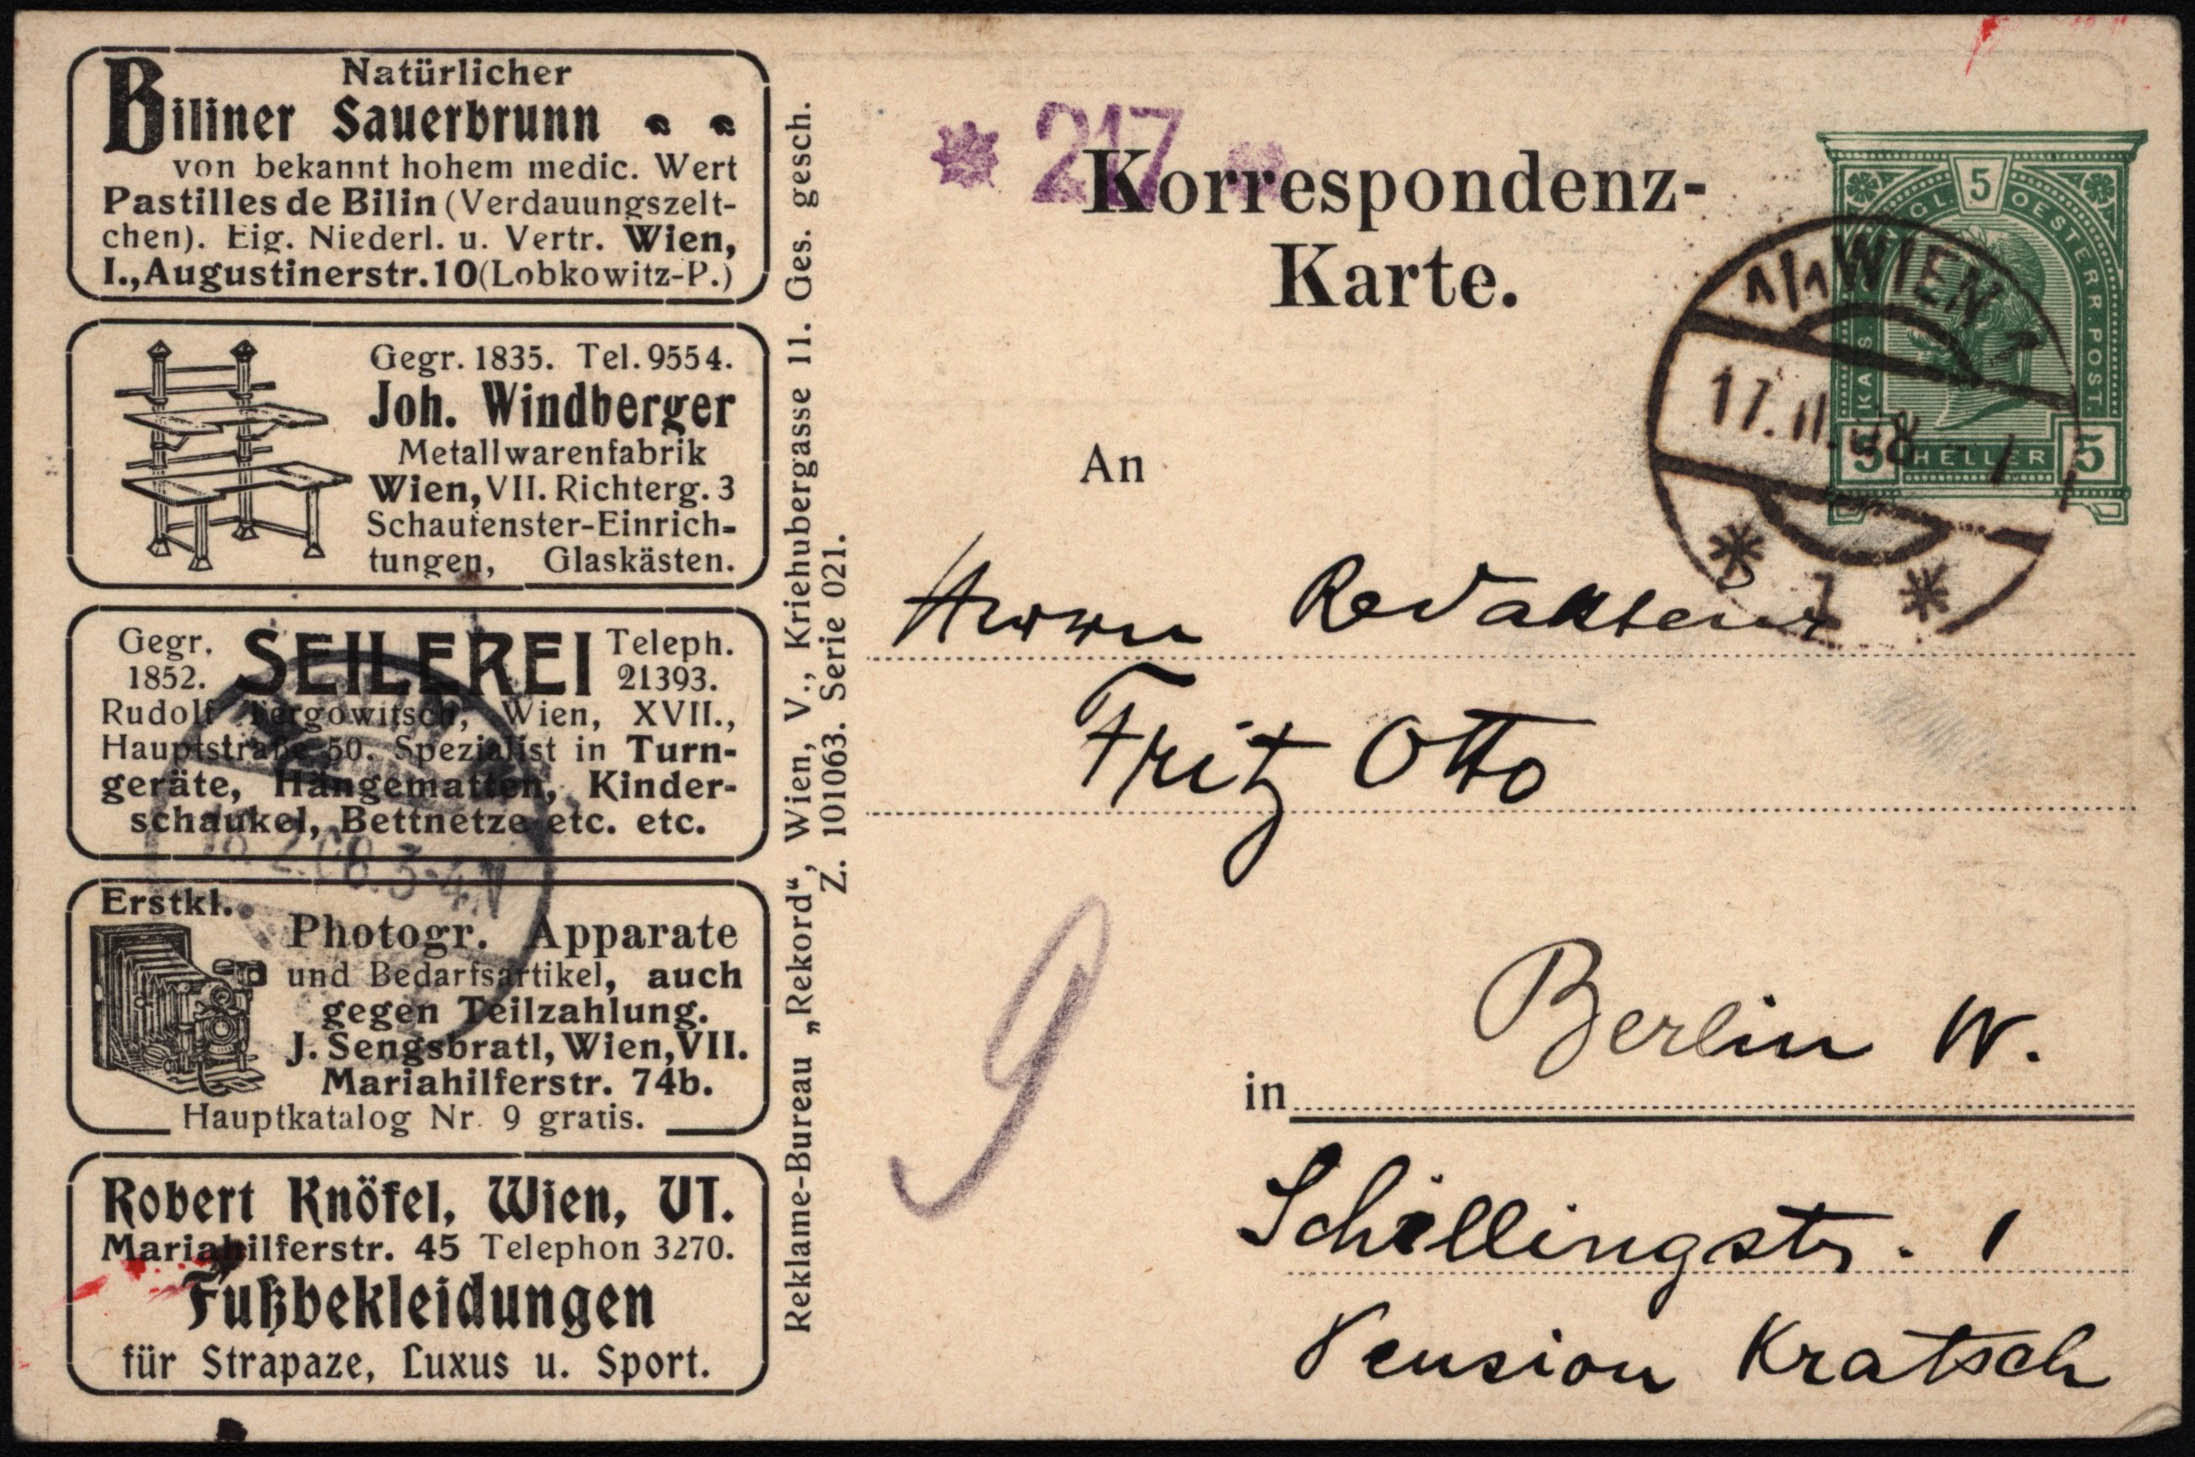 Natürlicher
Biliner Sauerbrunn
von bekannt hohem medic. Wert
Pastilles de Bilin (Verdauungszelt-
chen). Eig. Niederl. u. Vertr. Wien,
I., Augustinerstr. 10 (Lobkowitz-P.)
Gegr. 1835. Tel. 9554.
Joh. Windberger
Metallwarenfabrik
Wien, VII. Richterg. 3
Schaufenster-Einrich-
tungen, Glaskästen.
Gegr. 1852. SEILEREI Teleph. 21393.
Rudolf Bergowitsch, Wien, XVII.,
Hauptstraße 50. Spezialist in Turn-
geräte, Hängematten, Kinder-
schaukel, Bettnetze etc. etc.
18.2.08.3-4N
Erstkl.
Photogr. Apparate
und Bedarfsartikel, auch
gegen Teilzahlung.
J. Sengsbratl, Wien, VII.
Mariahilferstr. 74b.
Hauptkatalog Nr. 9 gratis.
Robert Knöfel, Wien, VI.
Mariahilferstr. 45 Telephon 3270.
Fußbekleidungen
für Strapaze, Luxus u. Sport.
Reklame-Bureau „Rekord“, Wien, V., Kriehubergasse 11. Ges. gesch.
Z. 101063. Serie 021.
* 217 *
Korrespondenz-
Karte.
5
KAIS. KGL. OESTERR. POST.
5 HELLER 5
1/1 WIEN 1
17.II.08
1
An
Herrn Redakteur
Fritz Otto
9
in Berlin W.
Schillingstr. 1
Pension Kratsch